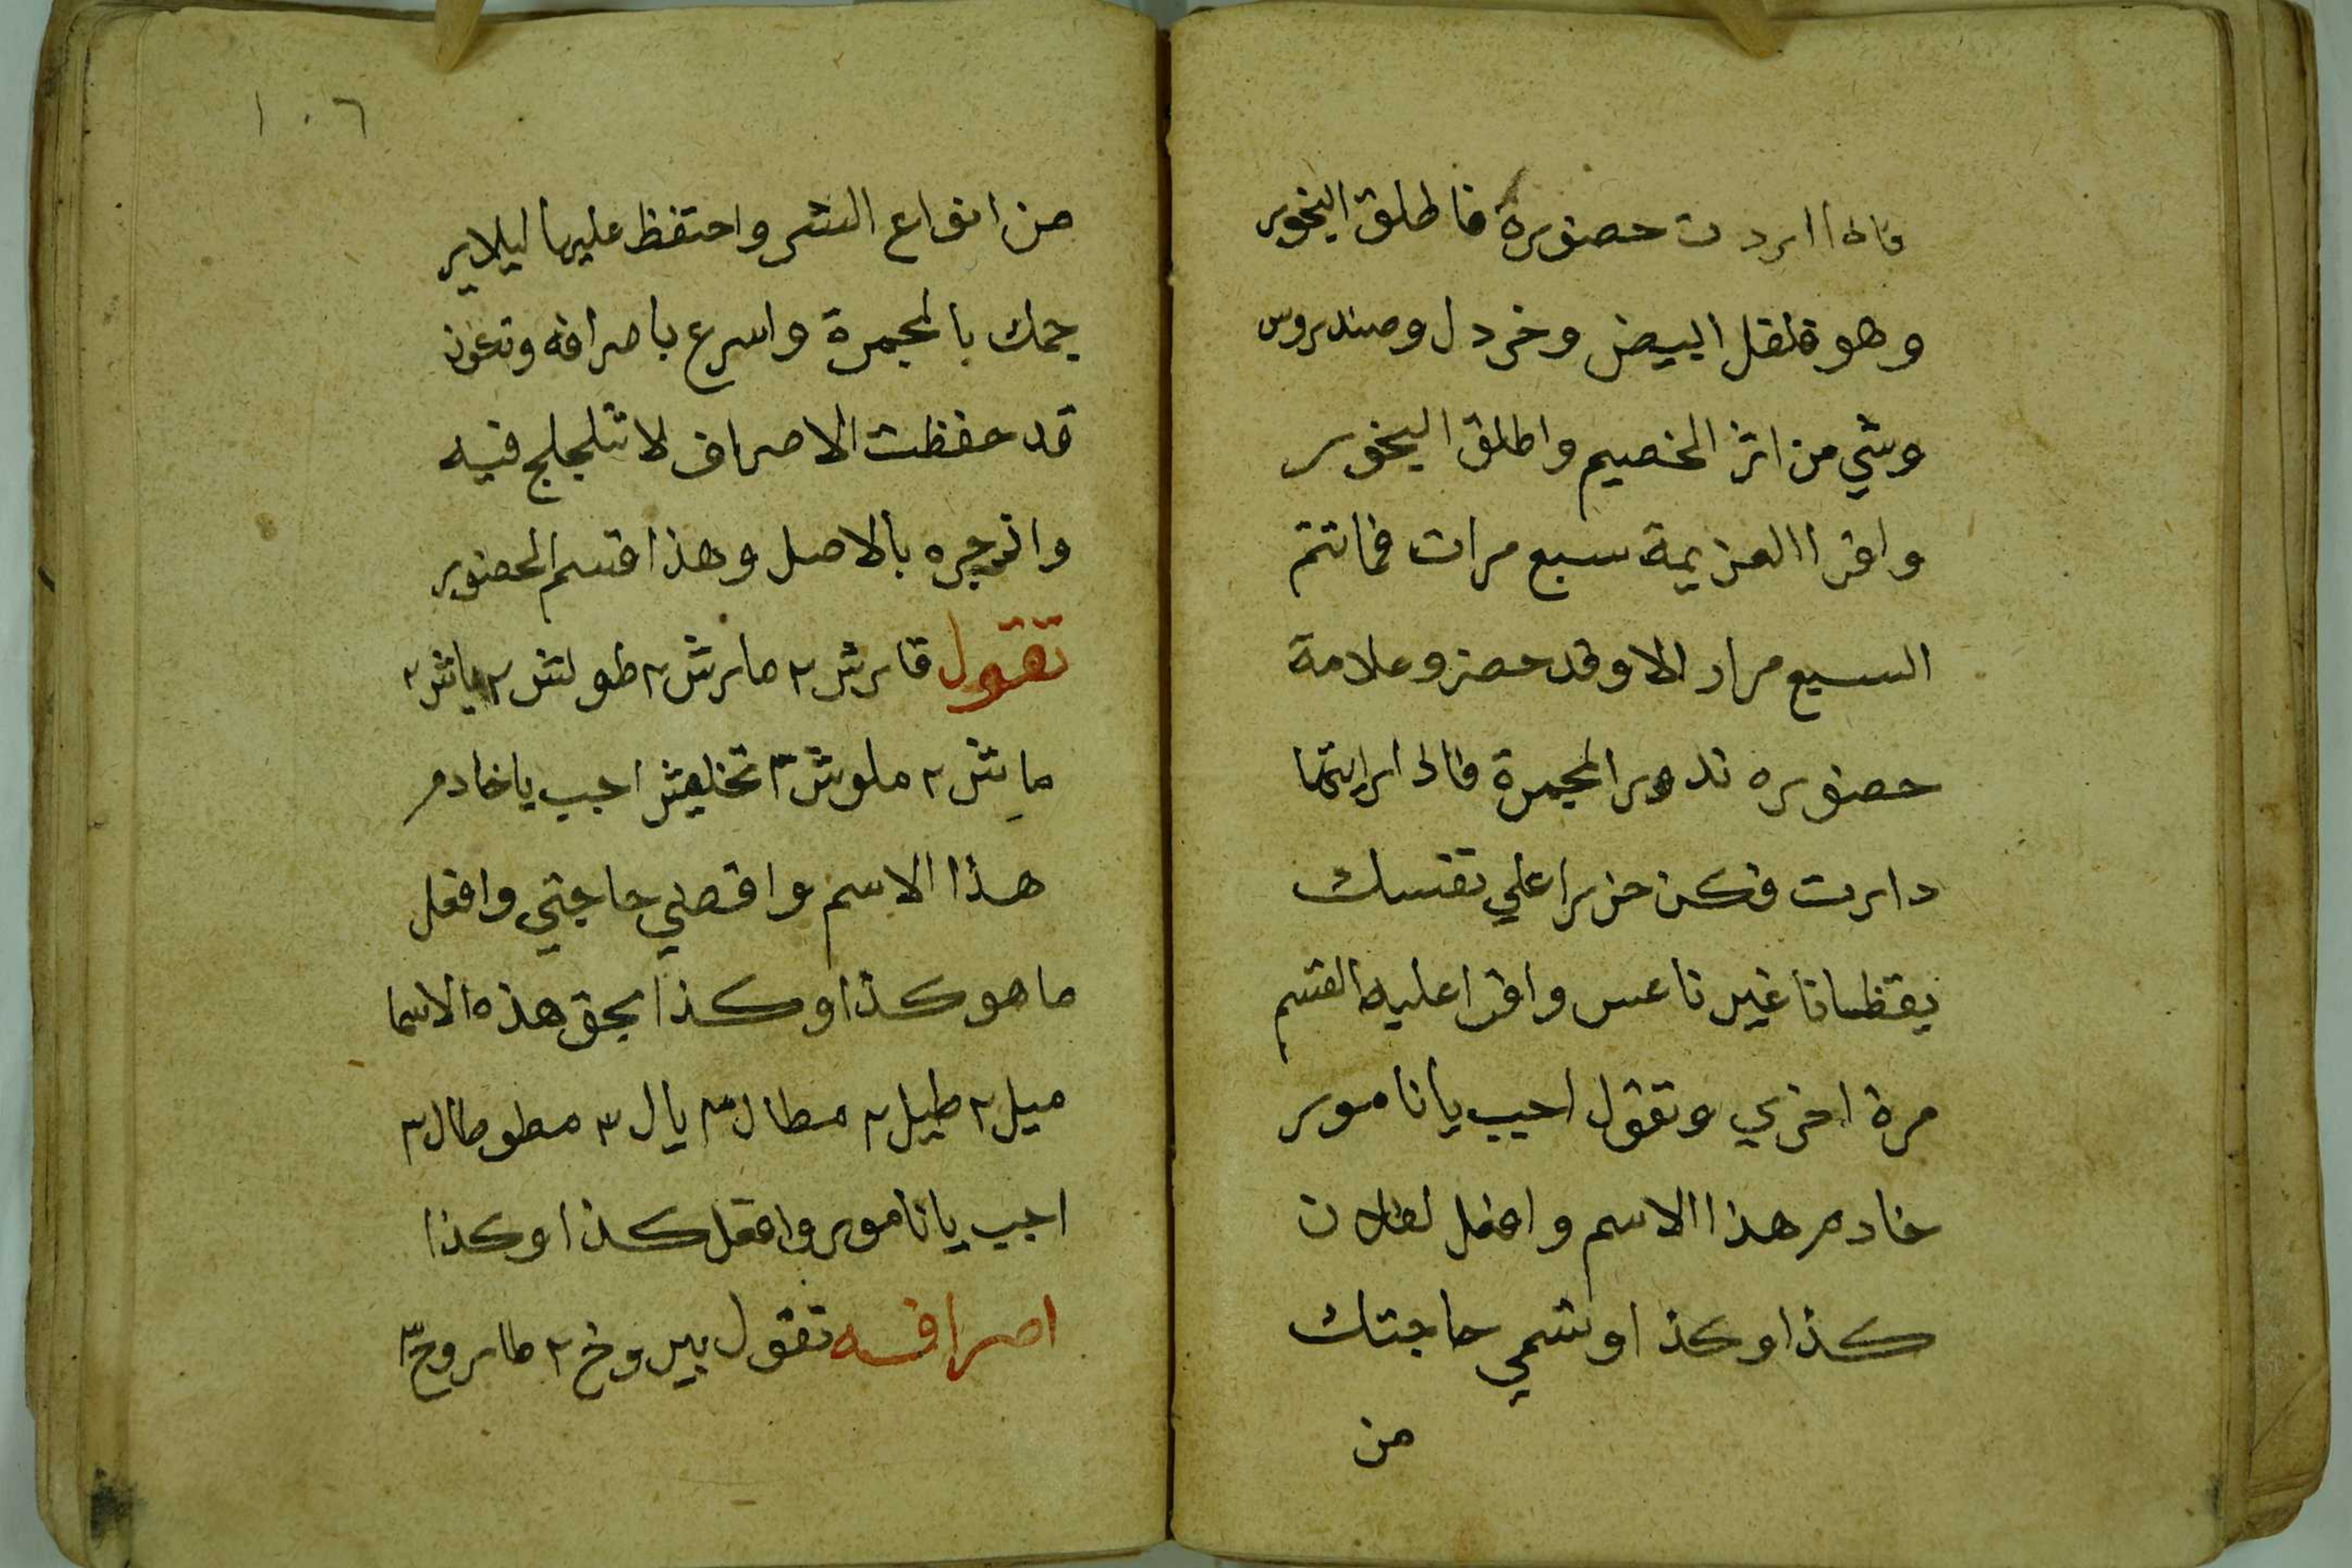 فاذا اردت حضوره فاطلق البخور
وهو فلفل ابيض وخردل وصندروس
وشي من اثر الخصيم واطلق البخور
واقرا العزيمة سبع مرات فما تتم
السبع مرار الا وقد حضر وعلامة
حضوره تدور المجمرة فاذا رايتها
دارت فكن حزرا علي نفسك
يقظانا غير ناعس واقرا عليه القسم
مرة اخري وتقول اجيب يا ناموير
خادم هذا الاسم وافعل لفلان
كذا وكذا وتسمي حاجتك
من
١٠٦
من انواع الشر واحتفظ عليها ليلا ير
جمك بالمجمرة واسرع باصرافه وتكون
قد حفظت الاصراف لا تتلجلج فيه
وازجره بالاصل وهذا قسم الحضور
تقول قارش ٢ مارش ٢ طولش ٢ ياش ٢
مايش ٢ ملوش ٣ تخليش اجب يا خادم
هذا الاسم واقضي حاجتي وافعل
ما هو كذا وكذا بحق هذه الاسما
ميل ٢ طيل ٢ مطال ٣ يال ٣ مطوطال ٣
اجب يا ناموير وافعل كذا وكذا
اصرافه تقول بيروخ ٢ طاروخ ٣